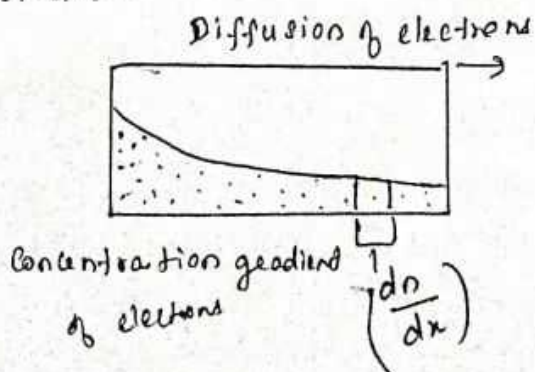 Diffusion of electrons
Concentration geadient
of electrons
(dn/dx)